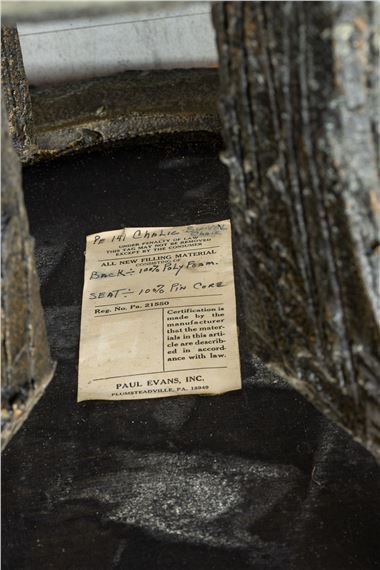 PE 141 CHALIC SWIVEL
CHAIR
UNDER PENALTY OF LAW
THIS TAG MAY NOT BE REMOVED
EXCEPT BY THE CONSUMER
ALL NEW FILLING MATERIAL
CONSISTING OF
BACK ÷ 100% POLY FOAM.
SEAT ÷ 100% PIN CORE
Reg. No. Pa. 21550
Certification is
made by the
manufacturer
that the mater-
ials in this arti-
cle are describ-
ed in accord-
ance with law.
PAUL EVANS, INC.
PLUMSTEADVILLE, PA. 18949